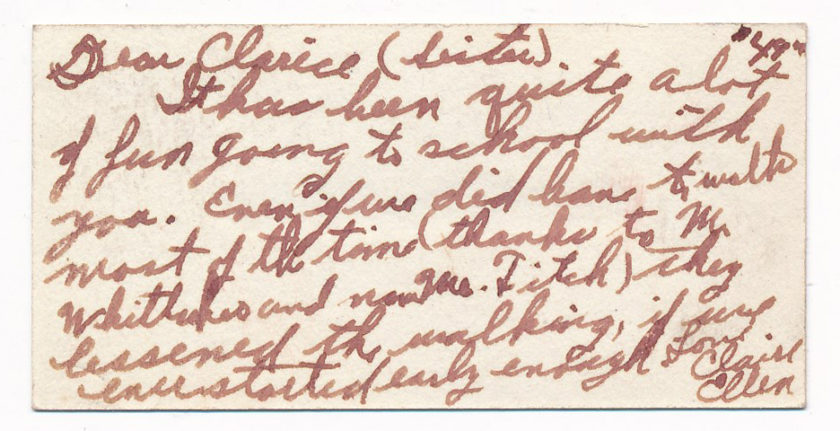 Dear Clarice (sister) "49"
It has been quite a lot
of fun going to school with
you. Even if we did have to walk
most of the time (thanks to Mr.
Whittaker and now Mr. Fitch) they
lessened the walking, if we
ever started early enough Love,
Claire
Ellen